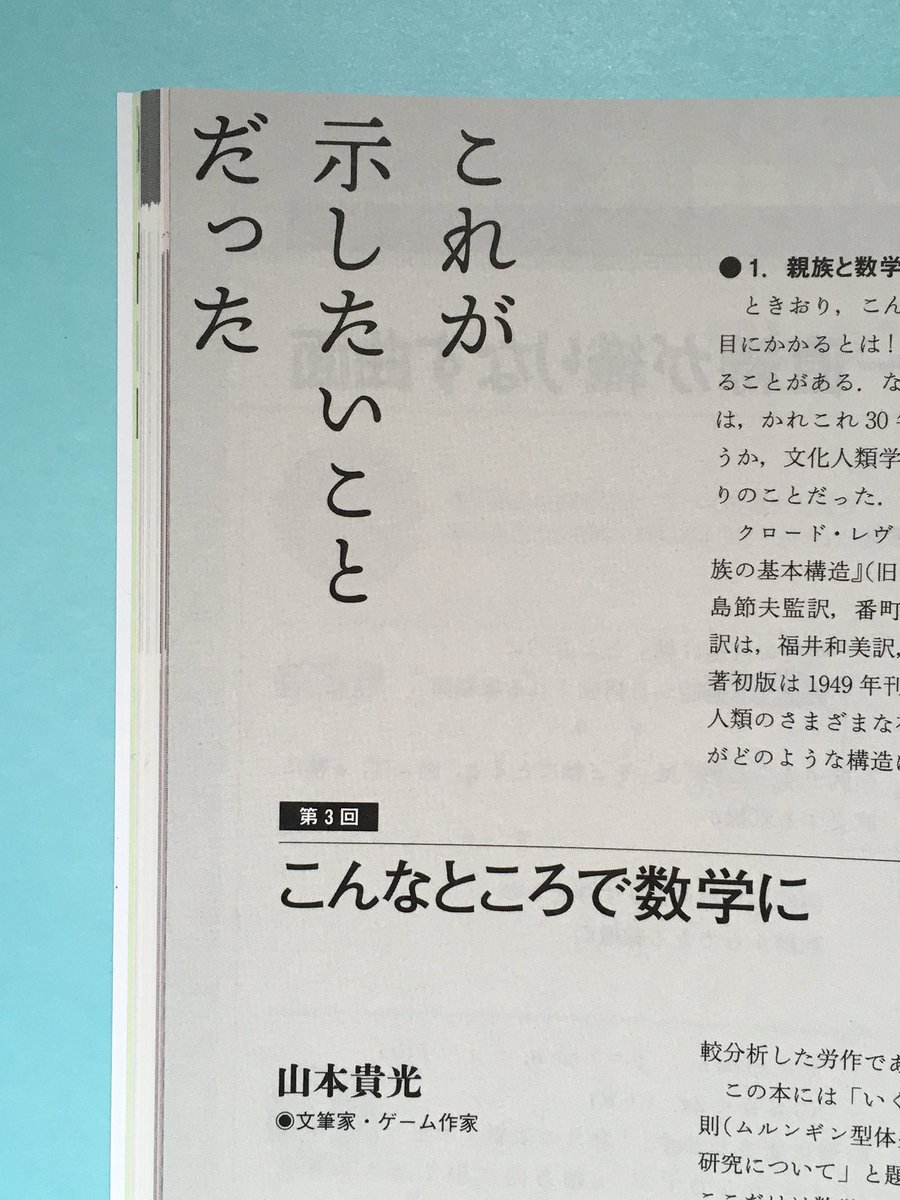 これが
示したいこと
だった
第3回
こんなところで数学に
山本貴光
●文筆家・ゲーム作家
●1. 親族と数学
ときおり，こん
目にかかるとは！
ることがある．な
は，かれこれ30年
うか，文化人類学
りのことだった．
クロード・レヴ
族の基本構造』(旧
島節夫監訳，番町
訳は，福井和美訳，
著初版は1949年刊
人類のさまざまな
がどのような構造に
較分析した労作であ
この本には「いく
則(ムルンギン型体
研究について」と題